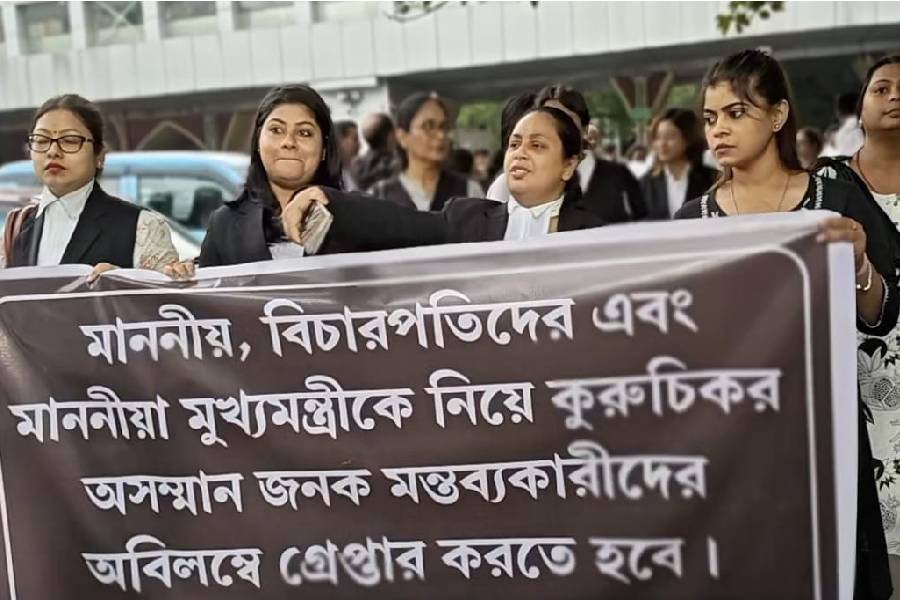 মাননীয়, বিচারপতিদের এবং
মাননীয়া মুখ্যমন্ত্রীকে নিয়ে কুরুচিকর
অসম্মান জনক মন্তব্যকারীদের
অবিলম্বে গ্রেপ্তার করতে হবে ।